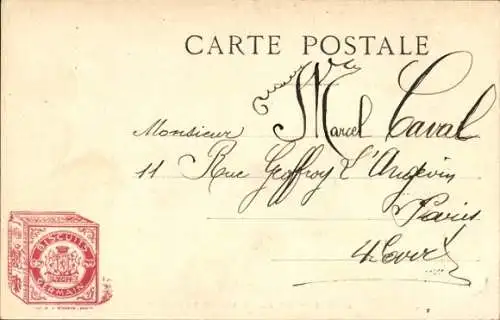 CARTE POSTALE
Monsieur Marcel Caval
11 Rue Geoffroy L'Angevin
Paris
BISCUITS
GERMAIN